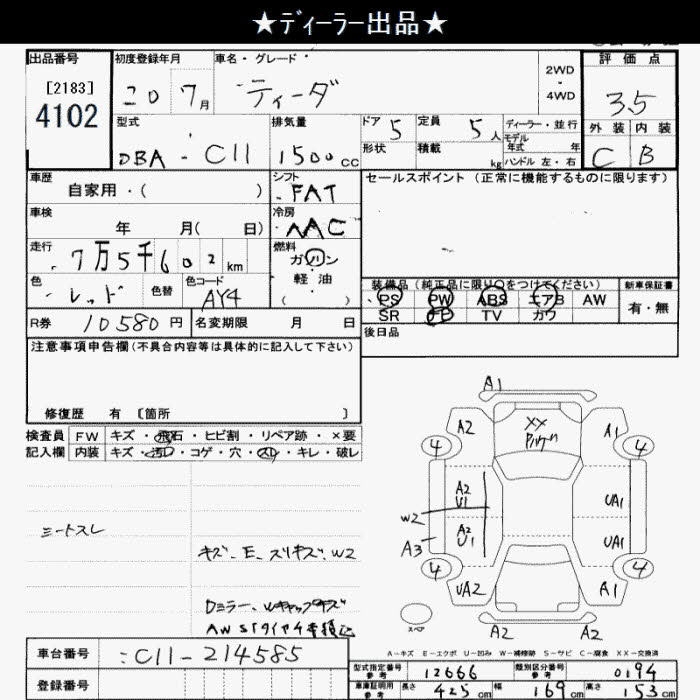 ★ディーラー出品★
出品番号 初度登録年月 車名・グレード 評価点
[2183]
4102
20 7月 ティーダ 2WD・4WD 3.5
型式 排気量 ドア 定員 ディーラー・並行 外装 内装
DBA - C11 1500cc 5 5人 モデル年式 年 C B
形状 積載 kg ハンドル 左・右
車歴 シフト セールスポイント (正常に機能するものに限ります)
自家用・( ) FAT
車検 冷房
年 月( 日) AAC
走行 燃料
7万5千602km ガソリン
色 色替 色コード 軽油
レッド AY4 ( )
装備品 (純正品に限り〇をつけてください) 新車保証書
PS PW ABS エアB AW 有・無
SR TV カワ
R券 10580円 名変期限 月 日
後日品
注意事項申告欄(不具合内容等は具体的に記入して下さい)
修復歴 有 〔箇所 〕
検査員 FW キズ・飛石・ヒビ割・リペア跡・×要
記入欄 内装 キズ・汚れ・コゲ・穴・スレ・キレ・破レ
シートスレ
キズ、E、スリキズ、W2
Dミラー、Wキャップキズ
A1
A2 XX A1
4 4
A2 U1 UA1
W2
A3 A2 U1 UA1
4 4
UA2 A1
スペア A2 A2
A-キズ E-エクボ U-凹み W-補修跡 S-サビ C-腐食 XX-交換済
車台番号 C11-214585
登録番号
型式指定番号 参考 12666 類別区分番号 参考 0194
車庫証明用 参考 長さ 425cm 幅 169cm 高さ 153cm